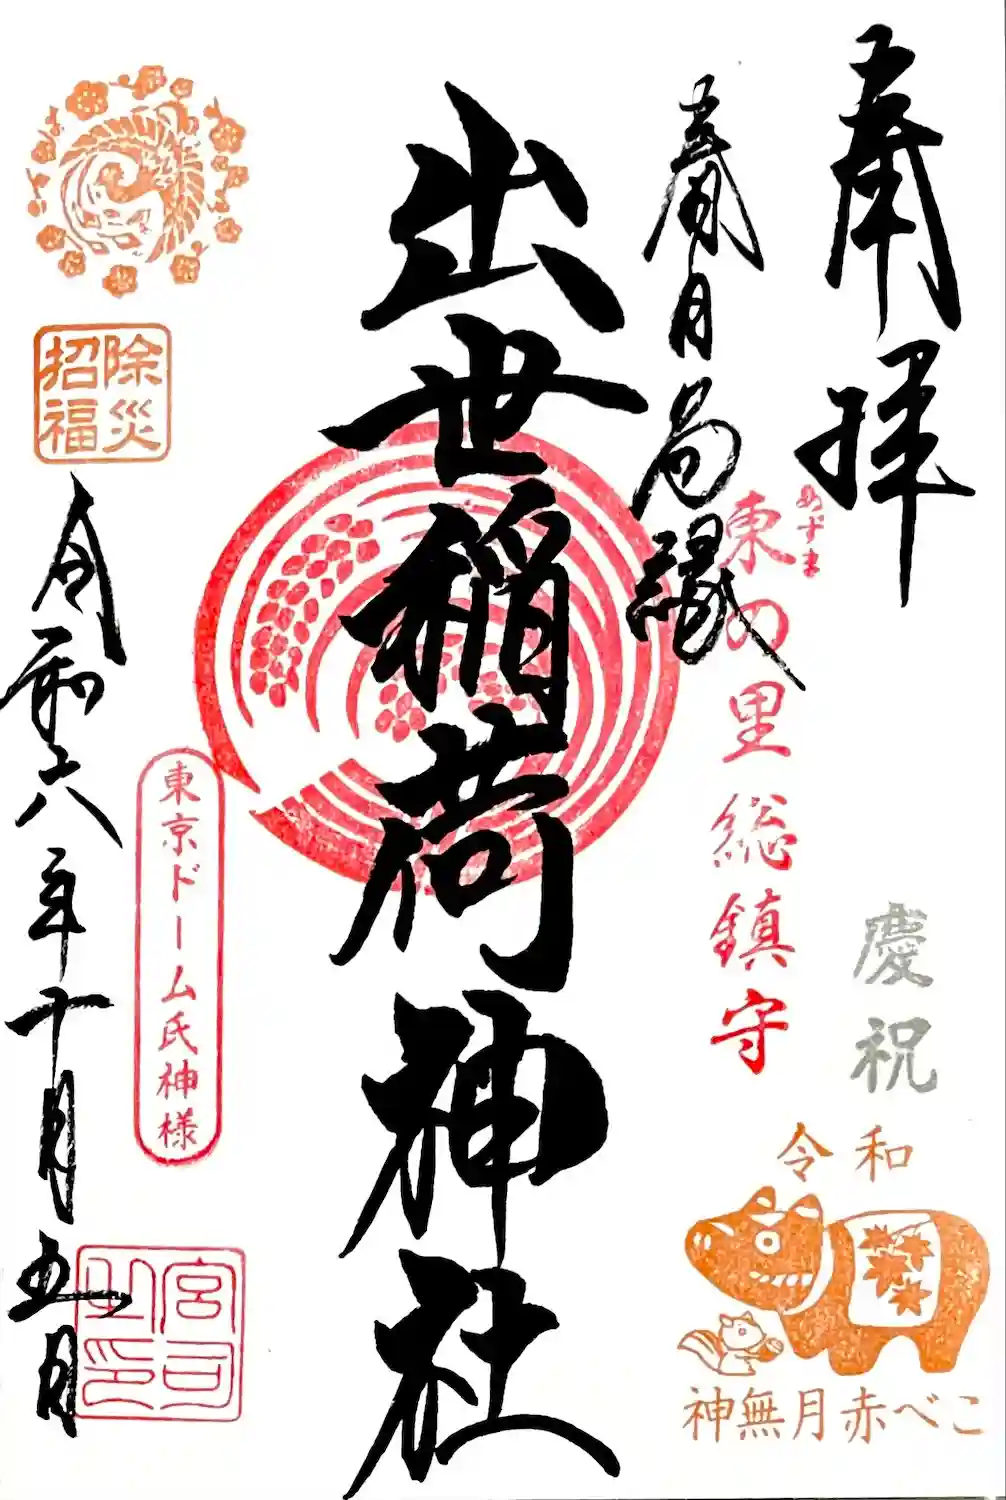 奉拝
春日局縁
東の里総鎮守
あずま
慶祝
令和
神無月赤べこ
出世稲荷神社
除災
招福
東京ドーム氏神様
令和六年十月五日
宮司
之印